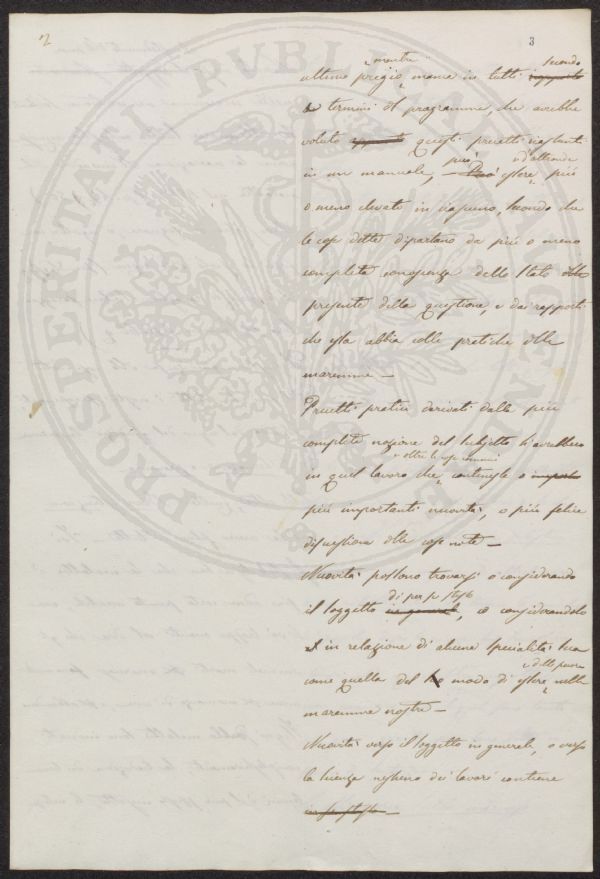 2
3
mentre secondo
ultimo pregio, manca in tutti rapporto
i termini del programma, che avrebbe
voluto questi precetti
può d'altronde
in un manuale, – Può essere, più
o meno elevato in, secondo che
le cose dette dipartano da più o meno
completa conoscenza dello stato delle
presente della questione, e dai rapporti
che essa abbia colle pratiche delle
maremme –
Precetti pratici derivati dalla più
completa nozione del subjetto s'avrebbero
oltre le cose comuni
in quel lavoro che, contenesse o importo
più importanti novità, o più felice
delle cose note –
Novità possono trovarsi o considerando
di per se stesso
il soggetto in generale, o considerandolo
in relazione di alcune specialità sua
e delle paure
come quella del modo di essere nelle
maremme nostre –
Novità verso il soggetto in generale, o verso
la scienza nessuno dei lavori contiene
in se stesso –
PROSPERITATI PUBLICAE AUGENDAE